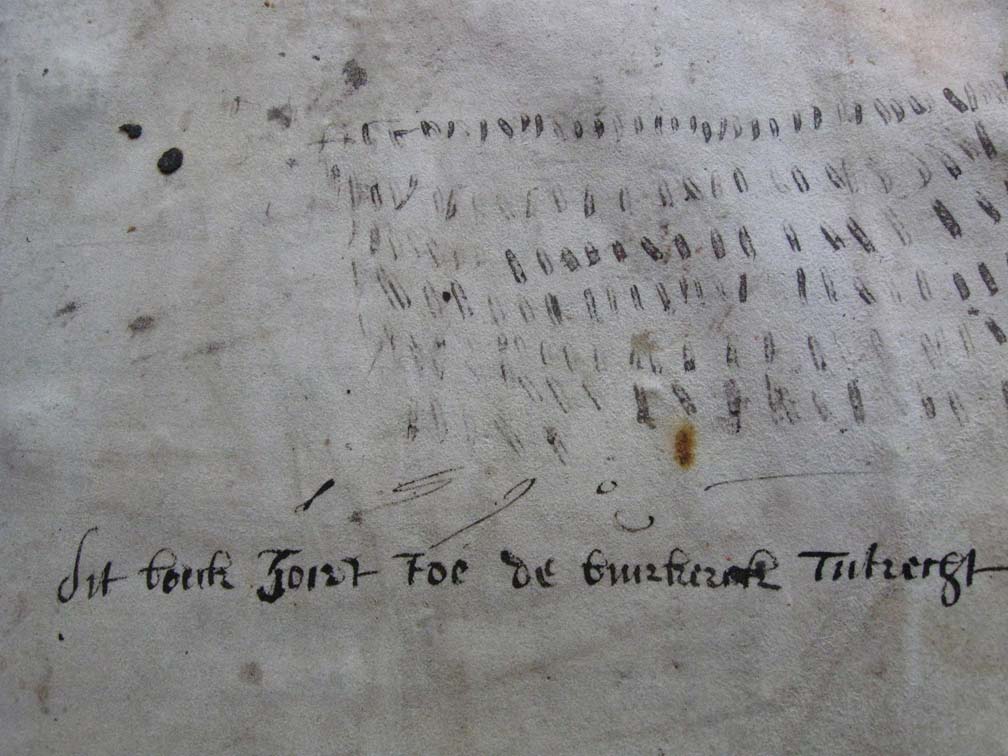 1598
dit boick hoirt toe de buirkerck Tutrecht